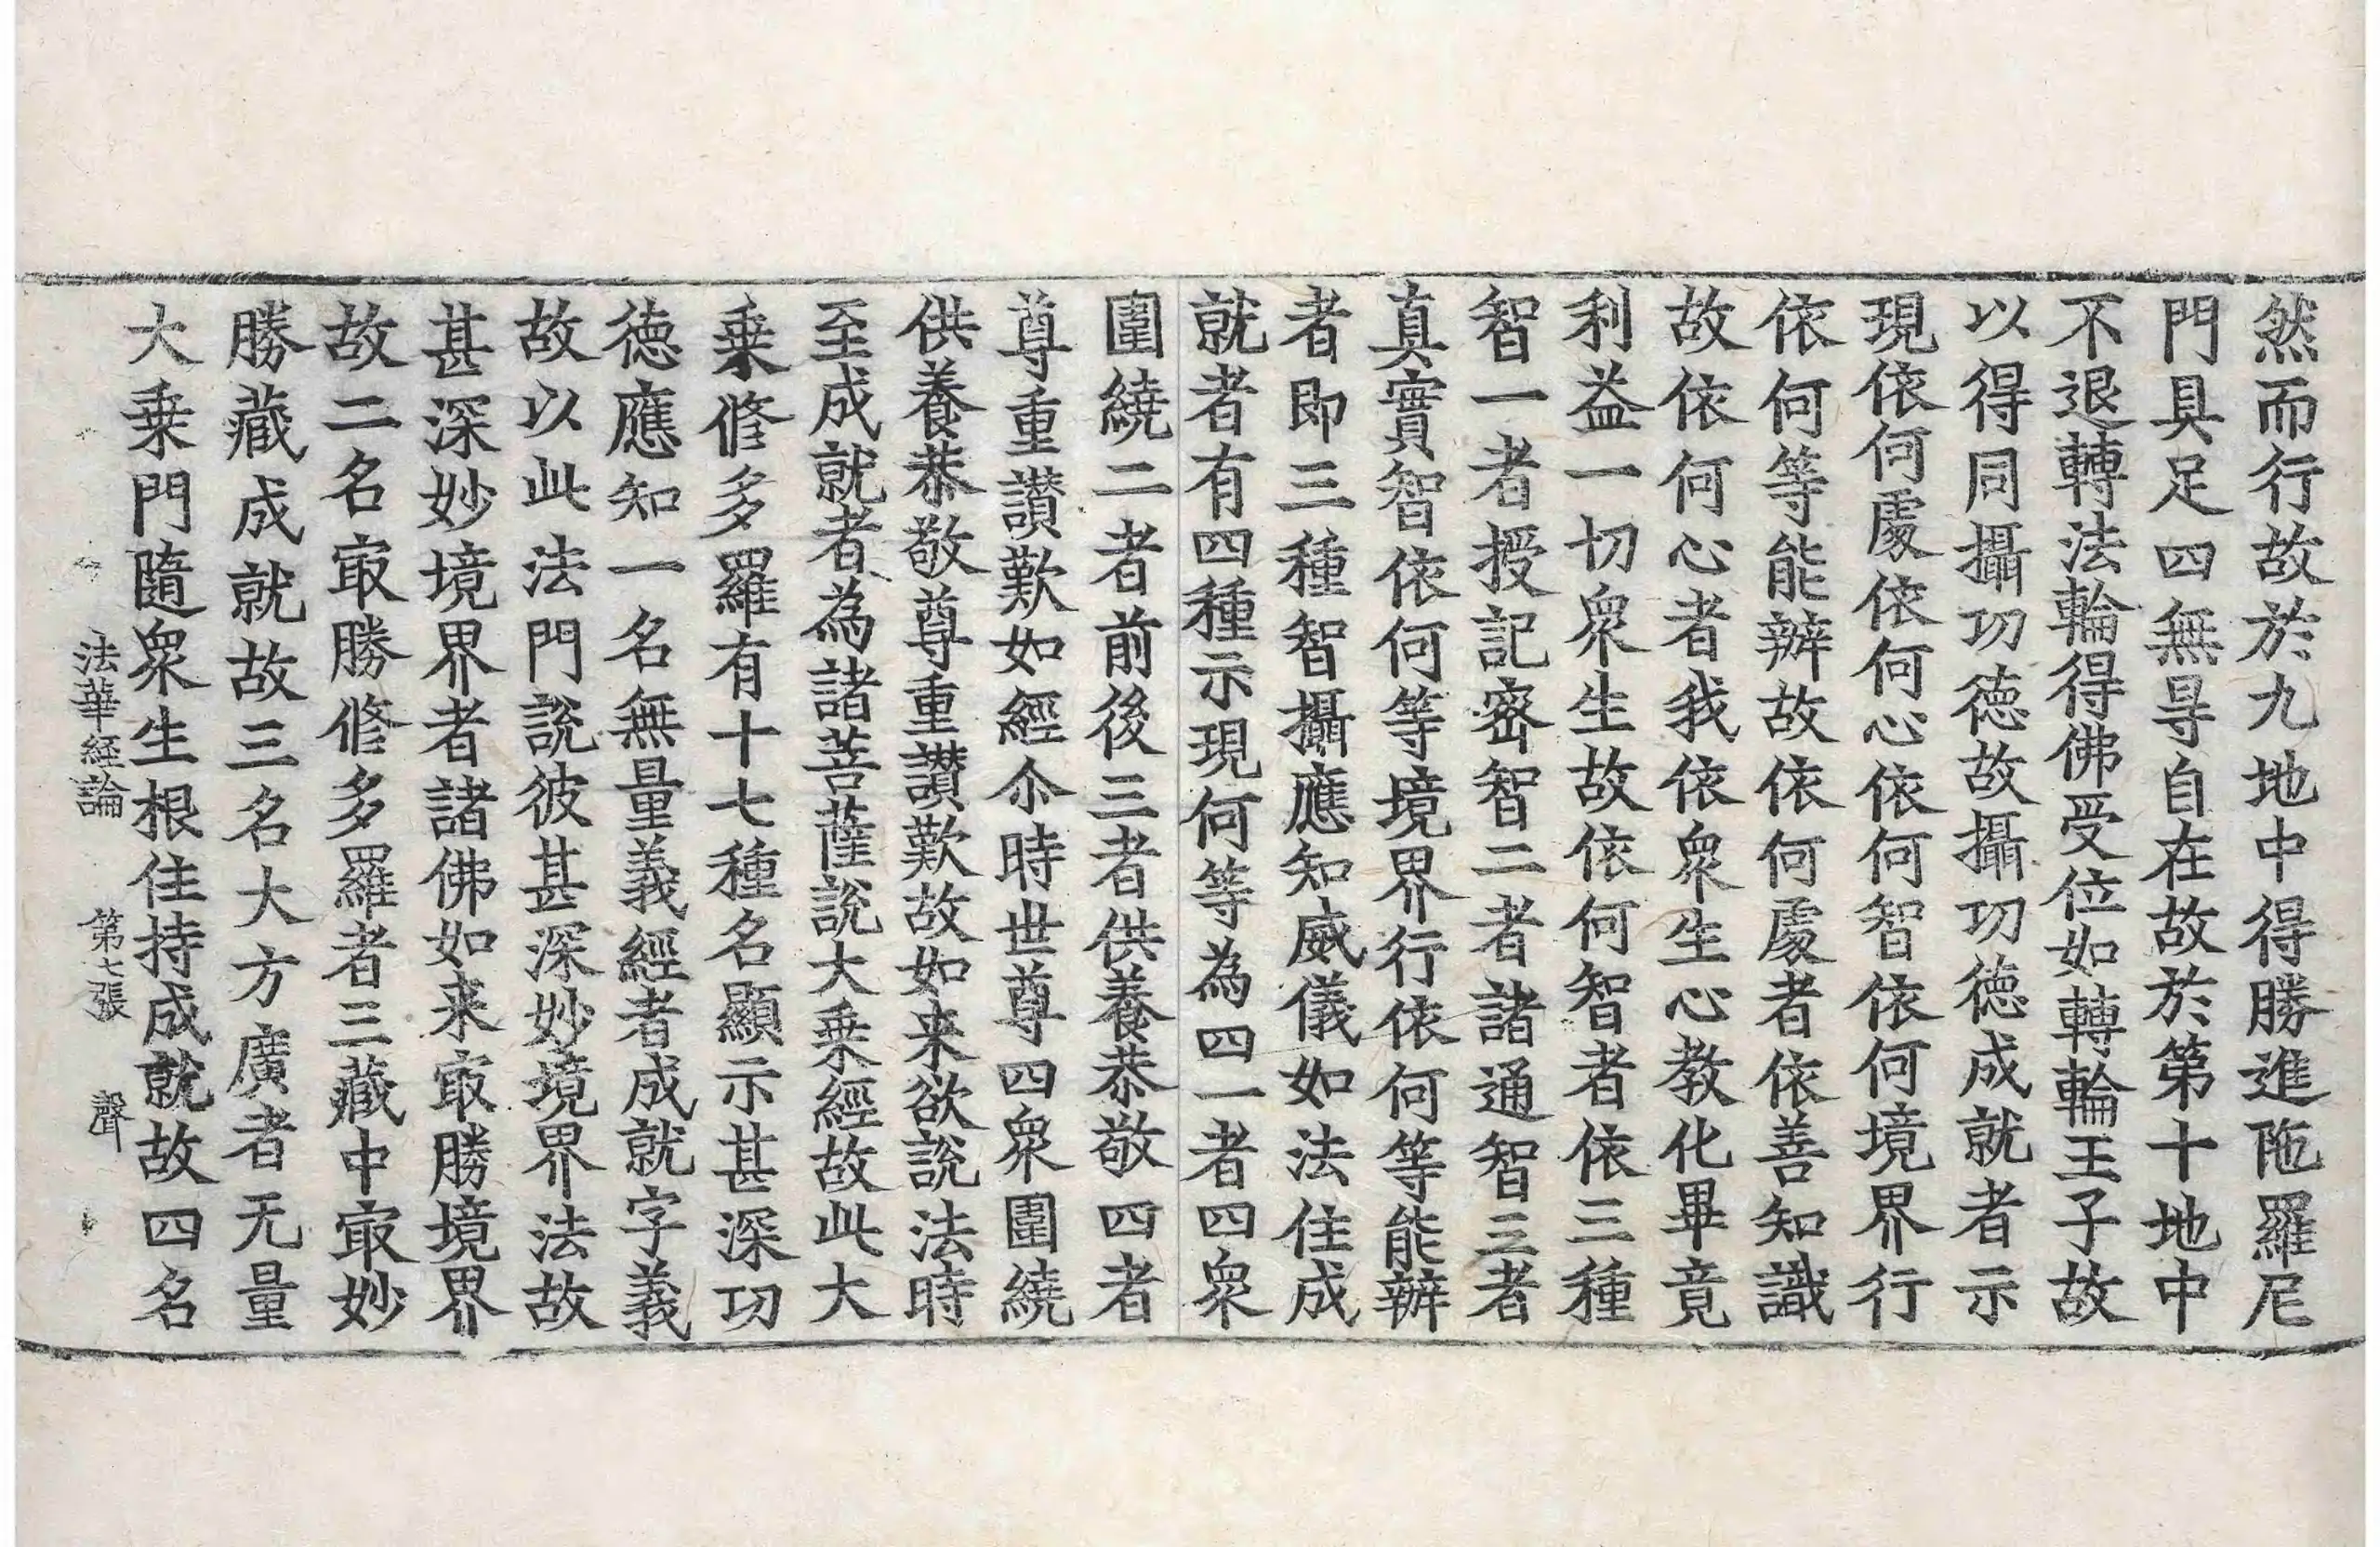 然而行故於九地中得勝進陁羅尼
門具足四無㝵自在故於第十地中
不退轉法輪得佛受位如轉輪王子故
以得同攝功德故攝功德成就者示
現依何處依何心依何智依何境界行
依何等能辦故依何處者依善知識
故依何心者我依衆生心教化畢竟
利益一切衆生故依何智者依三種
智一者授記密智二者諸通智三者
真實智依何等境界行依何等能辦
者即三種智攝應知威儀如法住成
就者有四種示現何等為四一者四衆
圍繞二者前後三者供養恭敬四者
尊重讃歎如經尒時世尊四衆圍繞
供養恭敬尊重讃歎故如来欲說法時
至成就者為諸菩薩說大乗經故此大
乗修多羅有十七種名顯示甚深功
德應知一名無量義經者成就字義
故以此法門說彼甚深妙境界法故
甚深妙境界者諸佛如来㝡勝境界
故二名㝡勝修多羅者三藏中㝡妙
勝藏成就故三名大方廣者无量
大乗門隨衆生根住持成就故四名
法華經論　第七張　聲